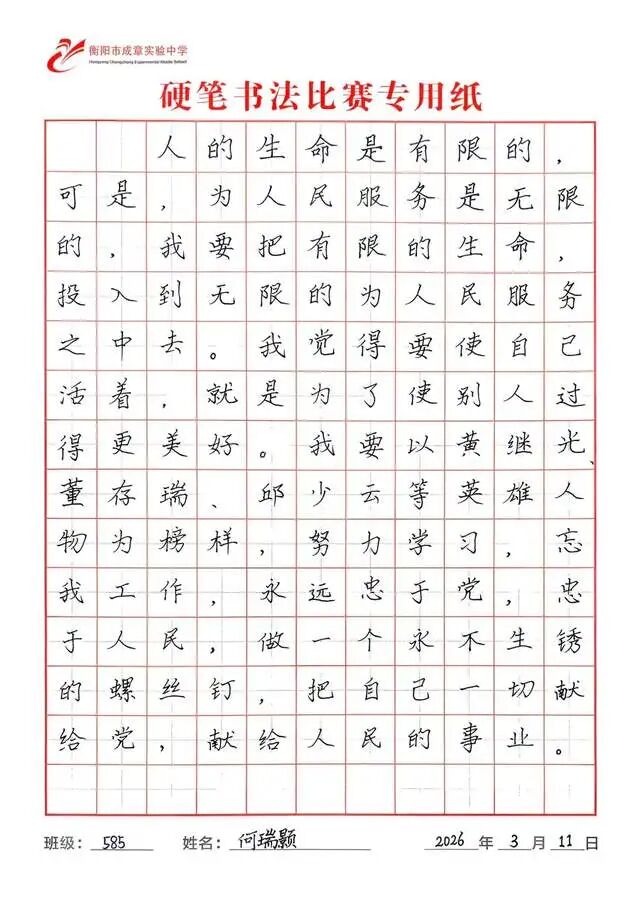 衡阳市成章实验中学
Hengyang Chengzhang Experimental Middle School
硬笔书法比赛专用纸
人的生命是有限的，
可是，为人民服务是无限
的，我要把有限的生命，
投入到无限的为人民服务
之中去。我觉得要使自己
活着，就是为了使别人过
得更美好。我要以黄继光、
董存瑞、邱少云等英雄人
物为榜样，努力学习，忘
我工作，永远忠于党，忠
于人民，做一个永不生锈
的螺丝钉，把自己一切献
给党，献给人民的事业。
班级：585 姓名：何瑞颢 2026年3月11日